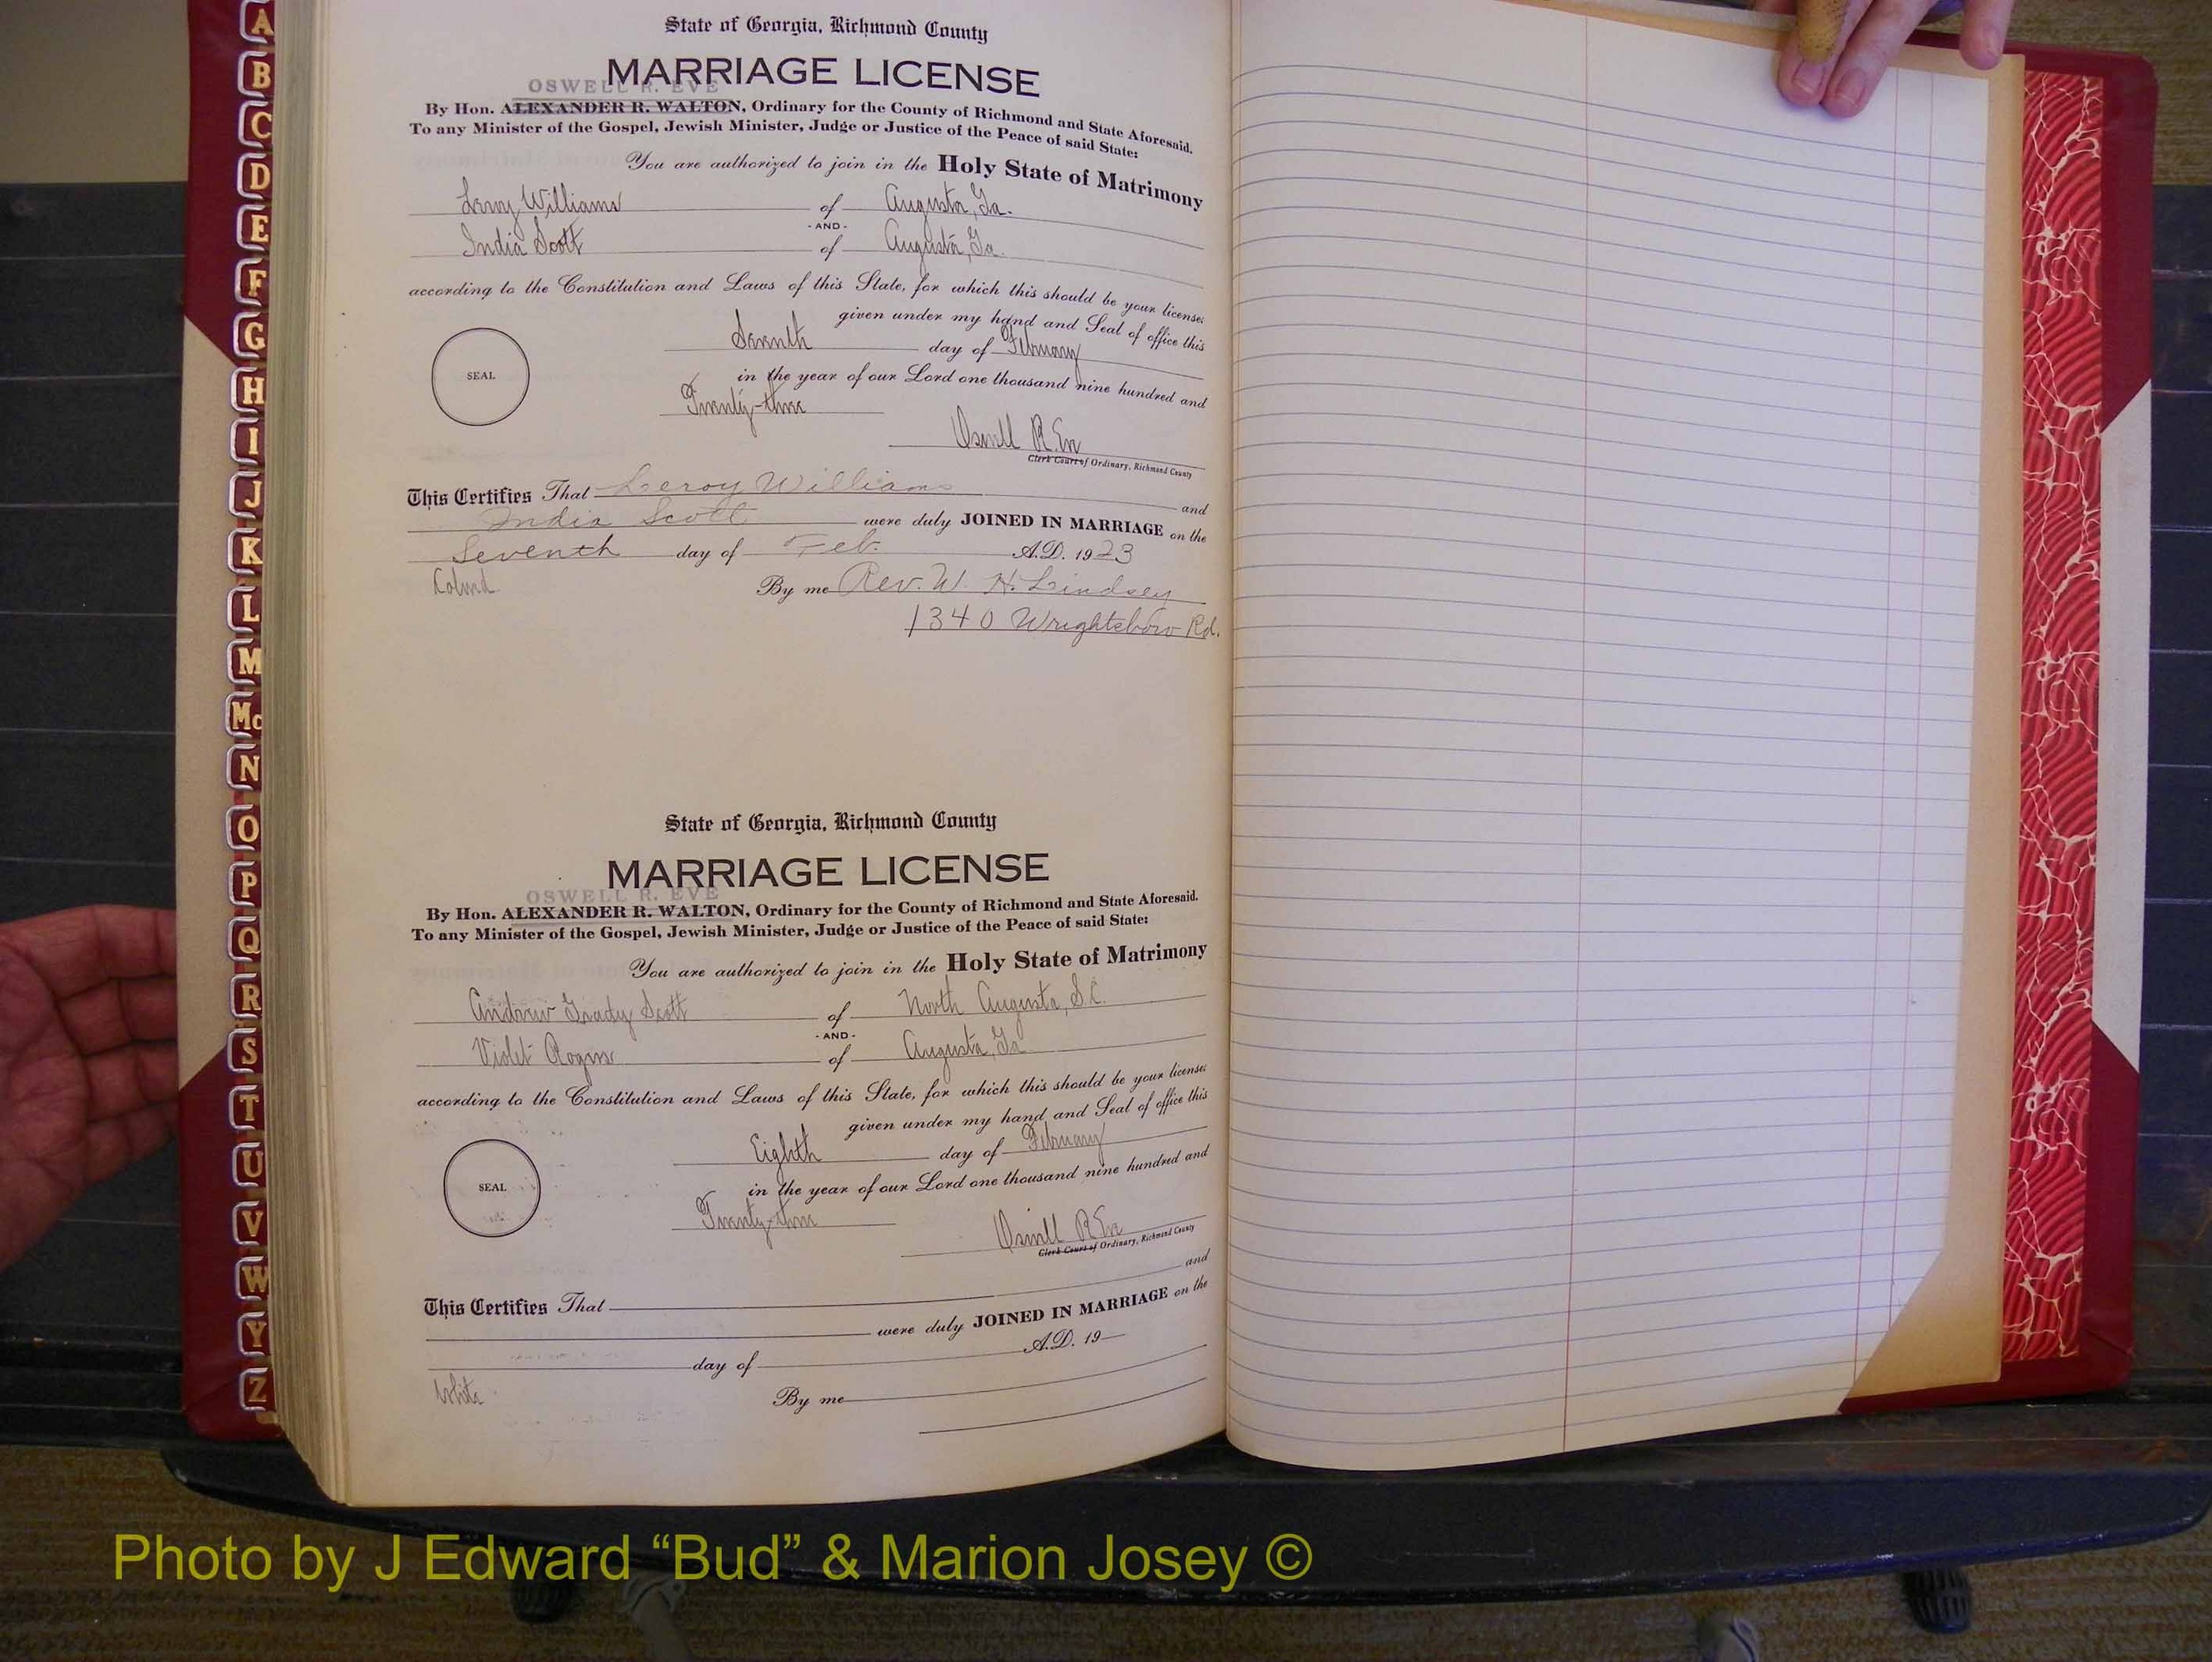 A
B
C
D
E
F
G
H
I
J
K
L
M
Mc
N
O
P
Q
R
S
T
U
V
W
Y
Z
State of Georgia, Richmond County
MARRIAGE LICENSE
OSWELL R. EVE
By Hon. ALEXANDER R. WALTON, Ordinary for the County of Richmond and State Aforesaid.
To any Minister of the Gospel, Jewish Minister, Judge or Justice of the Peace of said State:
You are authorized to join in the Holy State of Matrimony
Leroy Williams of Augusta, Ga.
- AND -
India Scott of Augusta, Ga.
according to the Constitution and Laws of this State, for which this should be your license;
given under my hand and Seal of office this
Seventh day of February
SEAL
in the year of our Lord one thousand nine hundred and
Twenty-three
Oswell R. Eve
Clerk Court of Ordinary, Richmond County
This Certifies That Leroy Williams and
India Scott were duly JOINED IN MARRIAGE on the
Seventh day of Feb. A.D. 1923
Colored By me Rev. W. H. Lindsey
1340 Wrightsboro Rd.
State of Georgia, Richmond County
MARRIAGE LICENSE
OSWELL R. EVE
By Hon. ALEXANDER R. WALTON, Ordinary for the County of Richmond and State Aforesaid.
To any Minister of the Gospel, Jewish Minister, Judge or Justice of the Peace of said State:
You are authorized to join in the Holy State of Matrimony
Andrew Grady Scott of North Augusta, S.C.
- AND -
Violet Rogers of Augusta, Ga
according to the Constitution and Laws of this State, for which this should be your license;
given under my hand and Seal of office this
Eighth day of February
SEAL
in the year of our Lord one thousand nine hundred and
Twenty-three
Oswell R. Eve
Clerk Court of Ordinary, Richmond County
This Certifies That and
were duly JOINED IN MARRIAGE on the
day of A.D. 19
White By me
Photo by J Edward “Bud” & Marion Josey ©